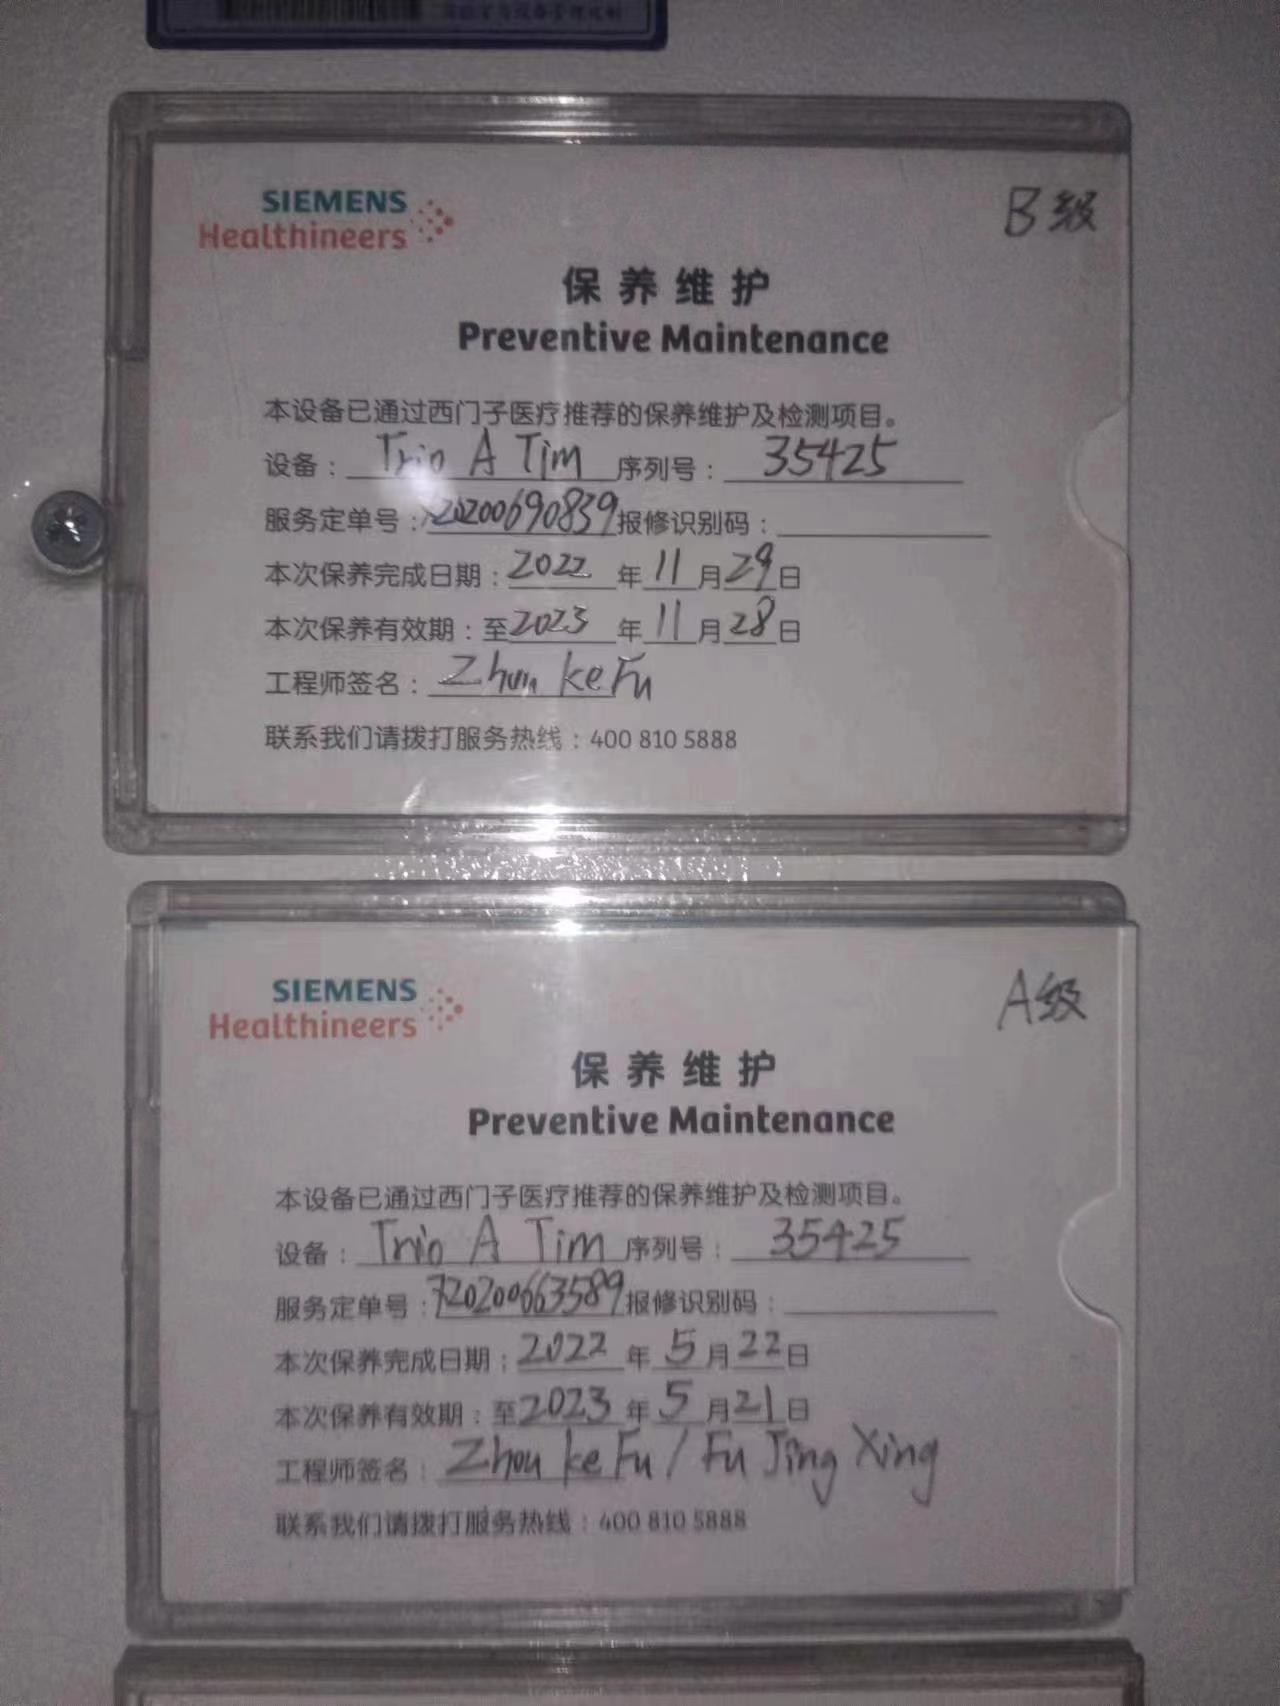 SIEMENS
Healthineers
B级
保养维护
Preventive Maintenance
本设备已通过西门子医疗推荐的保养维护及检测项目。
设备：Trio A Tim 序列号：35425
服务定单号：720200690839 报修识别码：
本次保养完成日期：2022 年 11 月 29 日
本次保养有效期：至 2023 年 11 月 28 日
工程师签名：Zhou ke Fu
联系我们请拨打服务热线：400 810 5888
SIEMENS
Healthineers
A级
保养维护
Preventive Maintenance
本设备已通过西门子医疗推荐的保养维护及检测项目。
设备：Trio A Tim 序列号：35425
服务定单号：720200663589 报修识别码：
本次保养完成日期：2022 年 5 月 22 日
本次保养有效期：至 2023 年 5 月 21 日
工程师签名：Zhou ke Fu / Fu Jing Xing
联系我们请拨打服务热线：400 810 5888